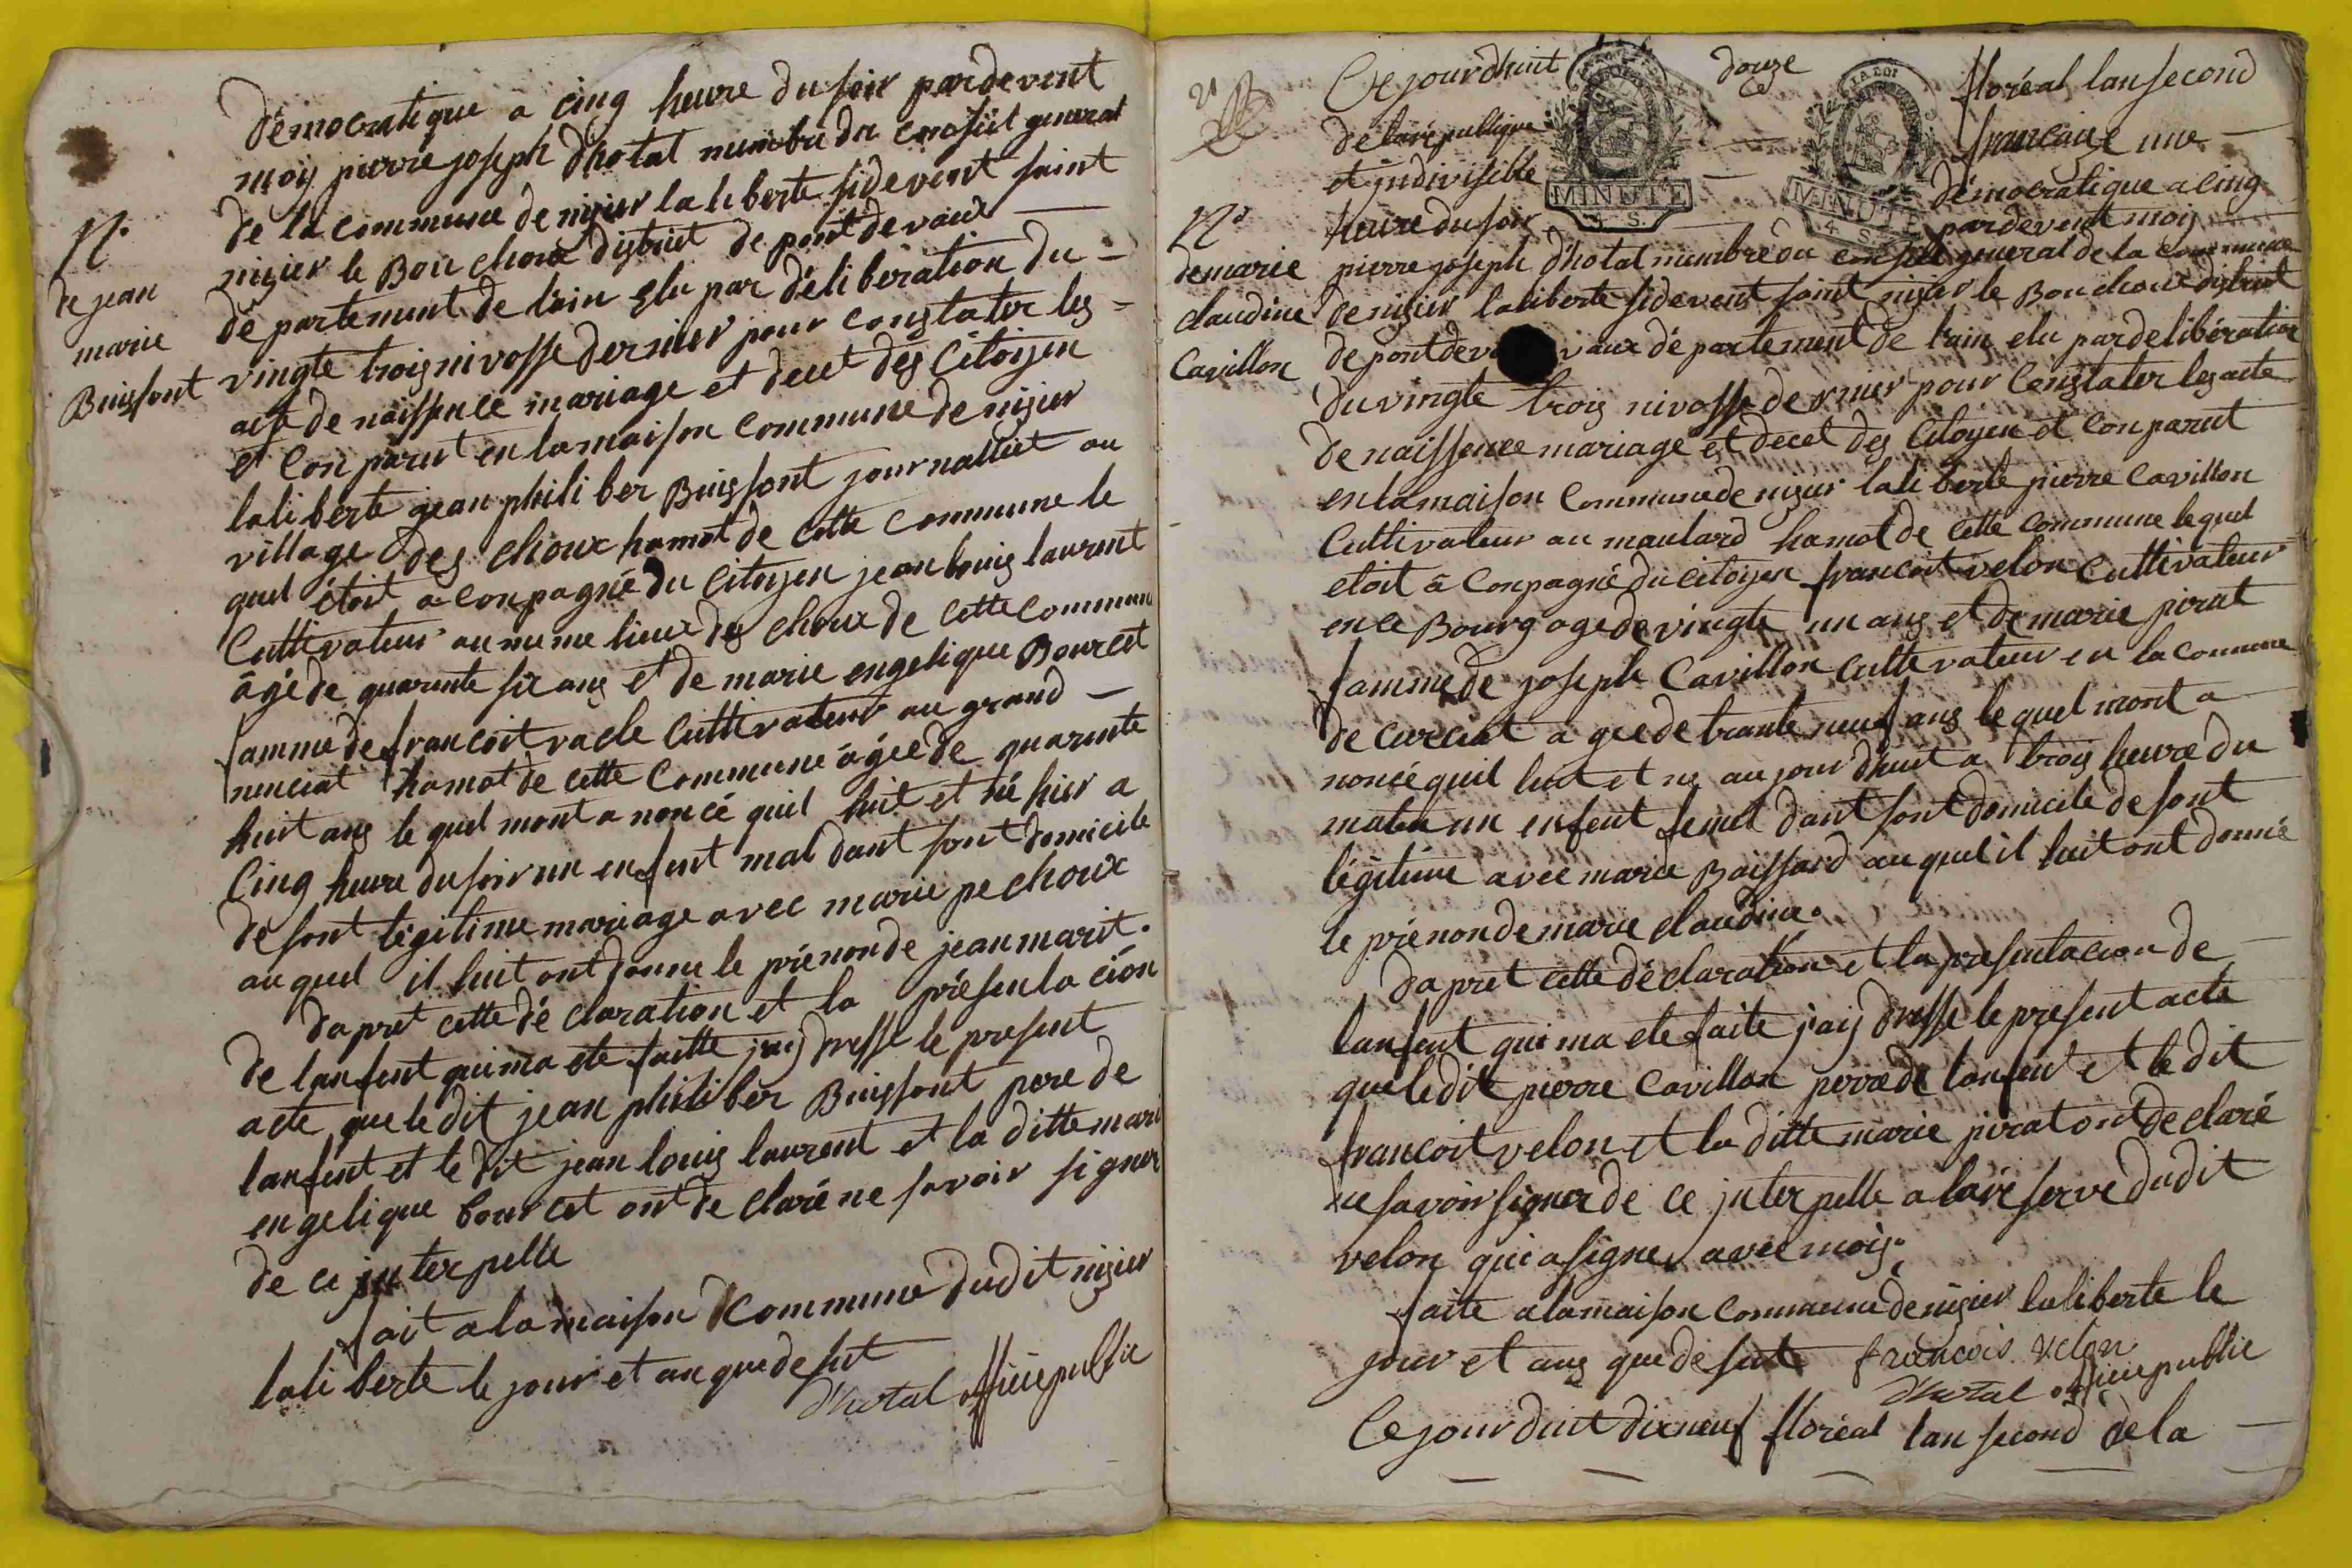 démocratique a cinq heure du soir pardevent
moy pierre joseph dhotal membre du conseit general
de la commune de nizier la liberte sidevent saint
nizier le Bouchoux district de pont de vaux
département de l'ain elu par déliberation du
vingte trois nivosse dernier pour constater les
acte de naissence mariage et decet des Citoyen
et Conparut en la maison commune de nizier
laliberte jean philiber Buissont journalliet au
village des choux hamot de cette Commune le
quel étoit a conpagnié du Citoyen jean louis laurent
Cuttivateur au meme lieux des choux de cette commun
âgé de quarente six ans et de marie engelique Bourcet
famme de francoit vacle Cuttivateur au grand
nenciat hamot de cette Commune âgée de quarente
huit ans le quel mont a noncé quil luit et né hier a
Cinq heure du soir un enfent mal dant sont domicile
de sont légitime mariage avec marie pechoux
auquel il luit ont donne le prénon de jean marit.
dapret cette dé claration et la présentacion
de lanfent qui ma ete faitte jaij dresse le present
acte que le dit jean philiber Buissont pere de
lanfent et le dit jean louis laurent et la ditte mari
engelique bourcet ont de claré ne savoir signer
de ce interpelle
fait a la maison Commune dudit nizier
laliberte le jour et an que de sut
dhotal officié public
N.
de jean
marie
Buissont
21
Ce jourdhuit douze floréal lan second
de la république francaise une
et indivisible démocratique a cinq
heure du soir pardevent moy
MINUTE
4. S.
LA LOI
MINUTE
4. S.
N.
de marie
claudine
Cavillon
pierre joseph dhotal membre du conseil general de la Commune
de nizier laliberte sidevent saint nizier le Bouchoux district
de pont de vaux département de l'ain elu par delibération
du vingte trois nivosse dernier pour Constater les acte
de naissence mariage et decet des Citoyen et Conparut
en la maison Commune de nizier laliberte pierre Cavillon
Cultivateur au maulard hamot de cette Commune lequel
etoit â Conpagnié du citoyen francoit velon Cultivateur
en ce Bourg age de vingte un ans et de marie pirat
famme de joseph Cavillon Cultivateur en la Commune
de Curciat a gée de trante neuf ans le quel mont a
noncé quil luit et né aujour dhuit a trois heure du
matin un enfent femel dant sont domicile de sont
légitime avec marie Boissard auquel il luit ont donné
le prénon de marie claudine.
dapret cette déclaration et la presentacion de
lanfent qui ma ete faite j'aij dresse le present acte
que ledit pierre Cavillon perre de lanfent et le dit
francoit velon et la ditte marie pirat ont de claré
ne savoir signer de ce interpelle a la réserve dudit
velon qui a signer avec moy.
faite a la maison commune de nizier laliberte le
jour et ans que de sut francois velon
dhotal officié public
Ce jourduit dix neuf floréal lan second de la